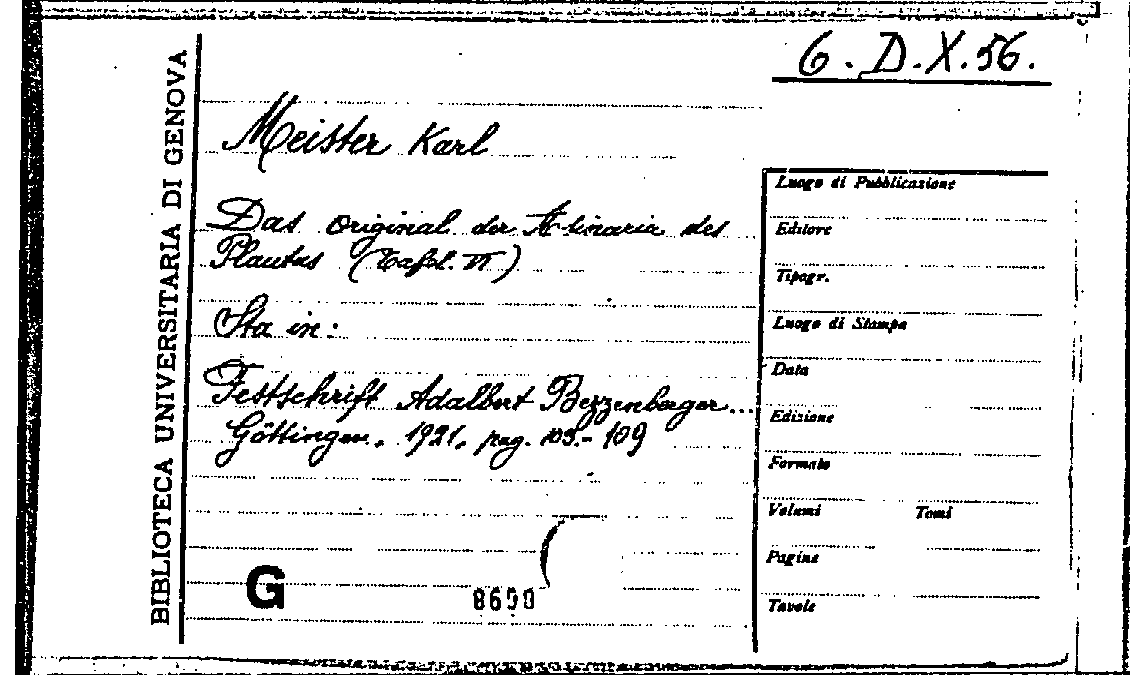 6. D.X.56.
BIBLIOTECA UNIVERSITARIA DI GENOVA
Meister Karl
Das Original der Asinaria des
Plautus (Tafel. VI)
Sta in:
Festschrift Adalbert Bezzenberger...
Göttingen. 1921, pag. 103.- 109
G
Luogo di Pubblicazione
Editore
Tipogr.
Luogo di Stampa
Data
Edizione
Formato
Volumi Tomi
Pagine
Tavole